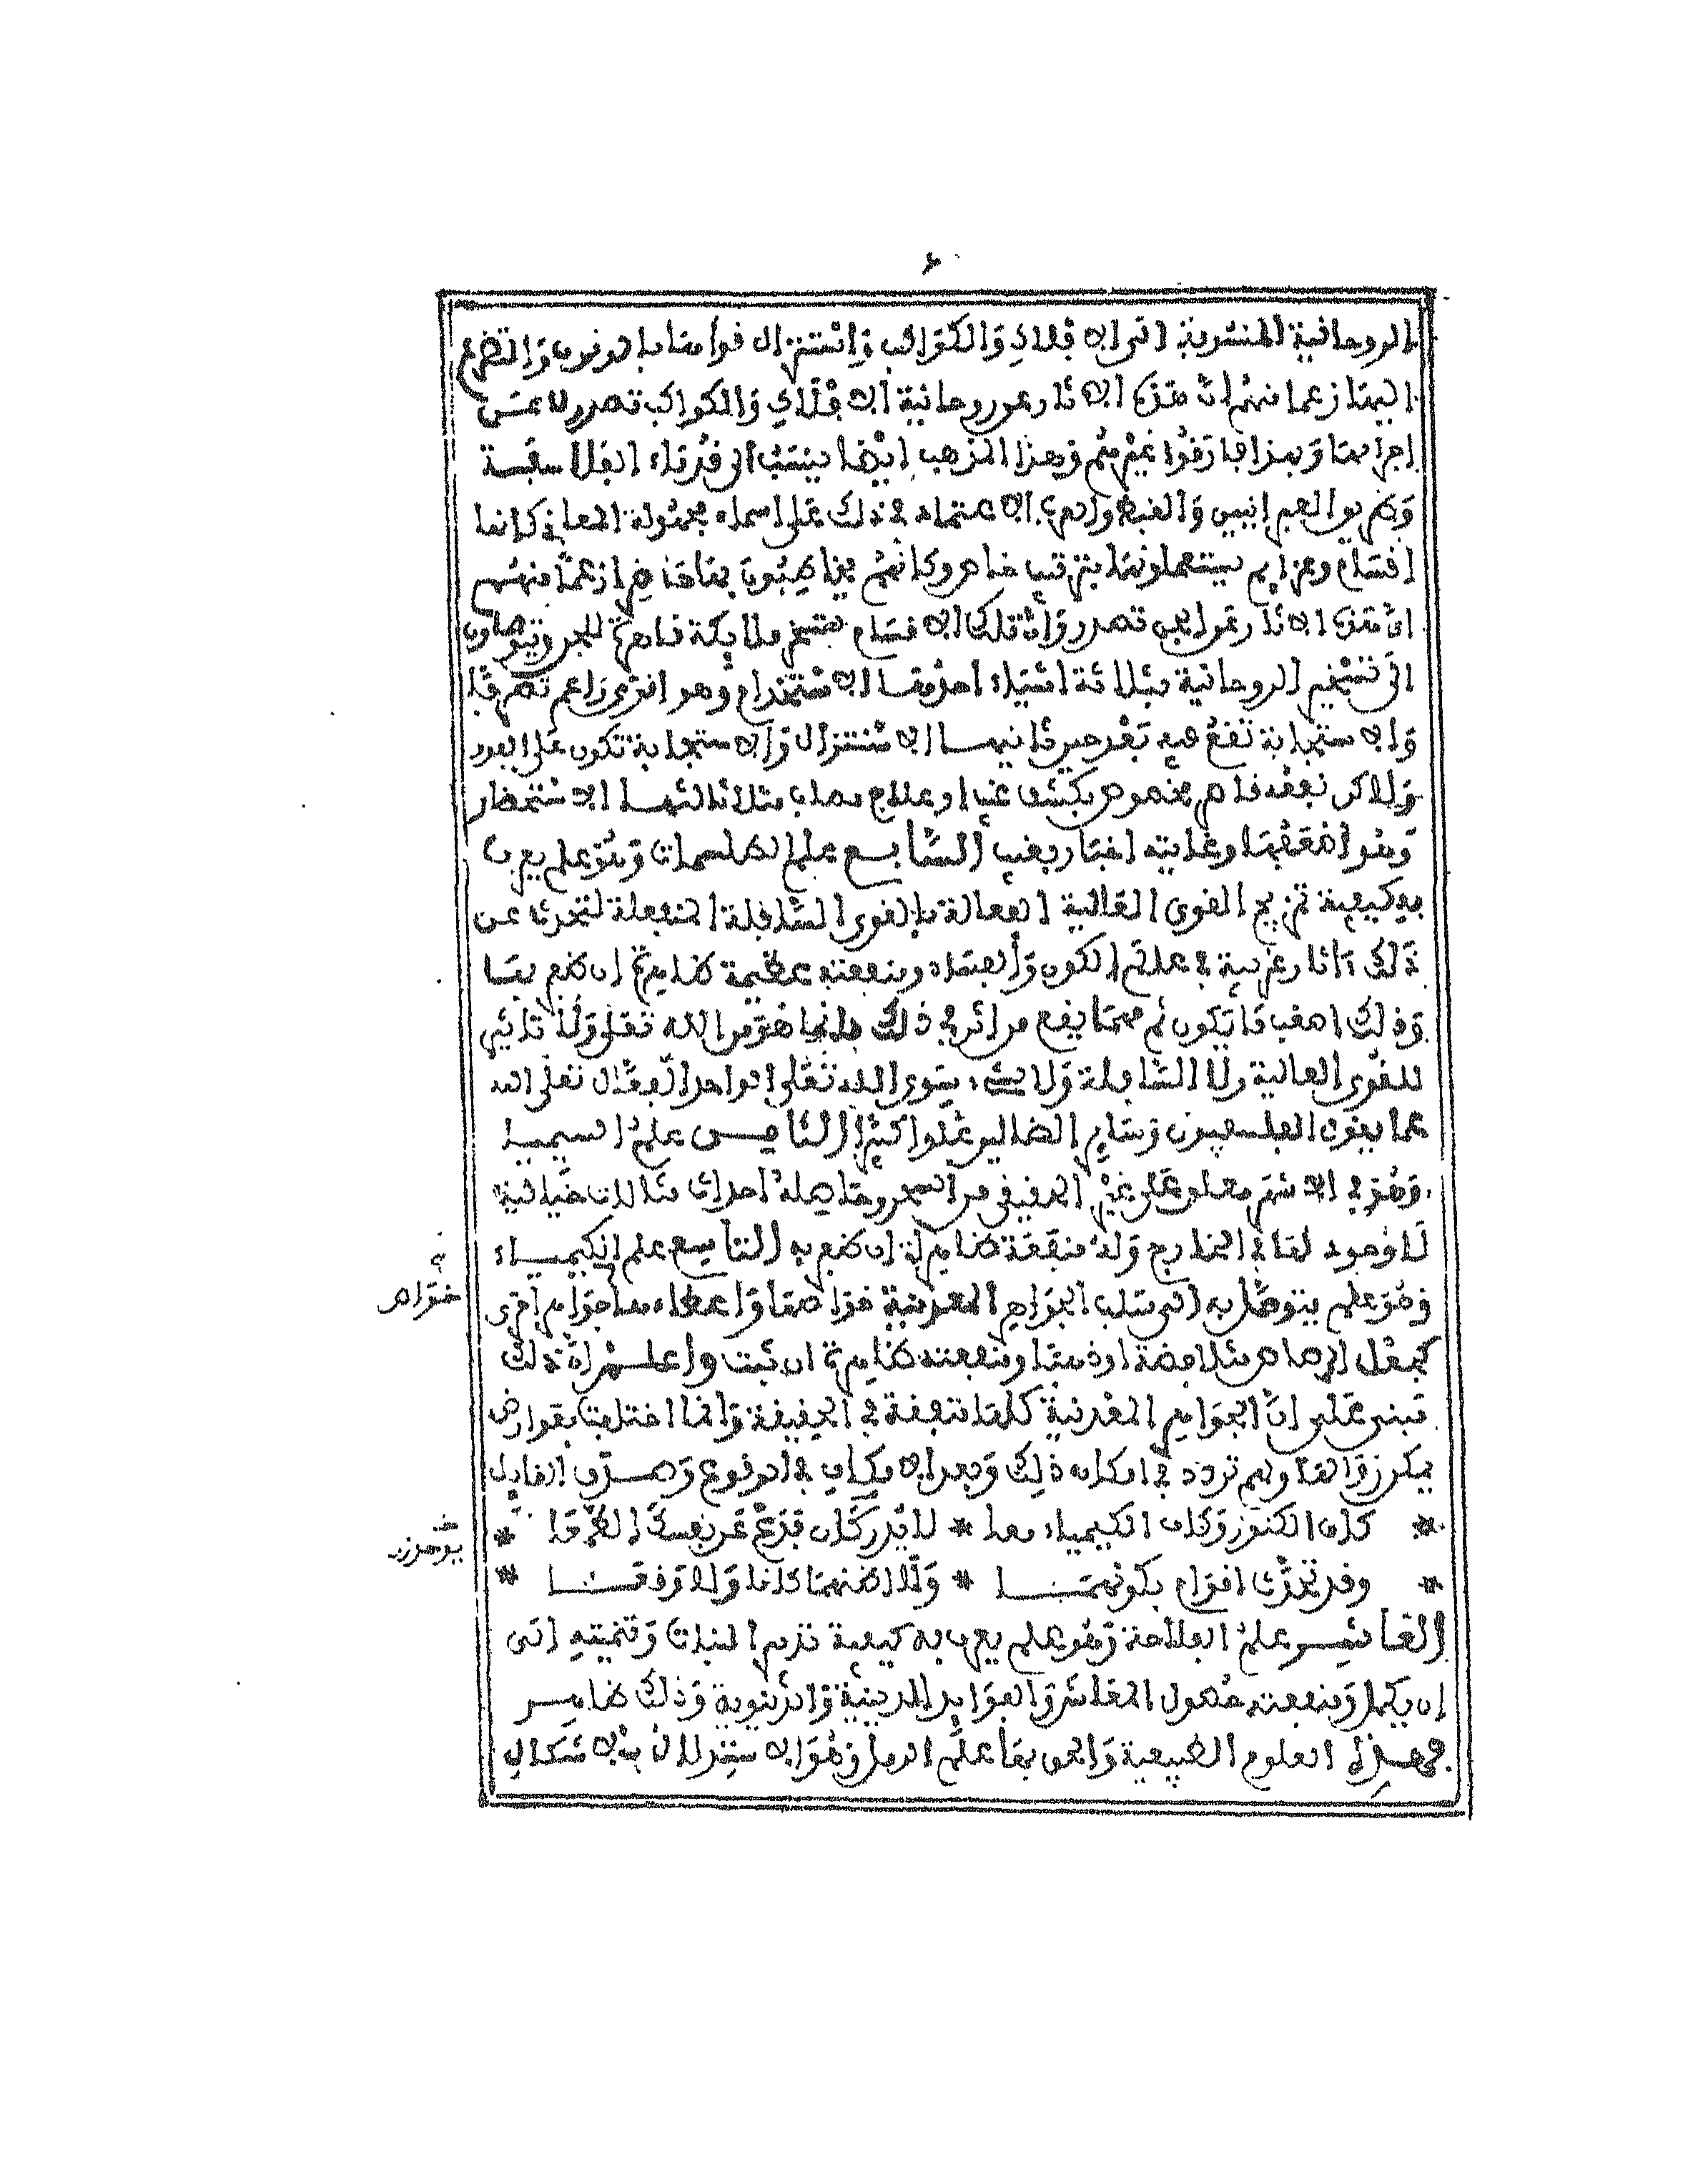 ٦
الروحانية المنشوبة الى الافلاك والكواكب واستنزال قواها بالوقوف والتضرع
اليها زعما منهم ان هذه الاثار عن روحانية الافلاك والكواكب تصدر لا عن
اجرامها وبهذا فارقوا غيرهم وهذا المذهب ايضا ينسب الى قدماء الفلاسفة
والعبرانيين والقبط والعرب الاعتماد في ذلك على اسماء مجهولة المعاني كانها
اقسام وعزايم يستعملونها بترتيب خاص وكانهم يخاطبون بها حاضرا زعما منهم
ان هذه الاثار عن الجن تصدر وان تلك الاقسام تسخر ملايكة قاهرة للجن ويتوصلون
الى تسخير الروحانية بثلاثة اشياء احدها الاستخدام وهو اقوى زاعم تصرفا
والاستجابة تقع فيه بعد حين ثانيها الاستنزال والاستجابة تكون على الفور
ولاكن نفعه قاصر مخصوص بكشف غيب او علاج مصاب مثلا ثالثها الاستحضار
وهو اضعفها وغايته اخبار بغيب السابع علم الطلسمات وهو علم يعرف
به كيفية تمزيج القوى العالية الفعالة بالقوى السافلة المنفعلة لتحدث عن
ذلك ءاثار غريبة في عالم الكون والفساد ومنفعته عظيمة ظاهرة ان ظفر بها
وذلك اصعب ما يكون ثم مهما يقع من اثر في ذلك فانما هو من الله تعلى ولا تاثير
للقوى العالية ولا السافلة ولا لشيء سوى الله تعلى الواحد الفعال تعلى الله
عما يقول الفلسفيون وساير الضالين علوا كبيرا الثامن علم السيميا
وهو في الاشهر مقول على غير الحقيقي من السحر وحاصله احداث مثالات خيالية
لا وجود لها في الخارج وله منفعة ظاهرة ان ظفر به التاسع علم الكيمياء
وهو علم يتوصل به الى سلب الجواهر المعدنية خواصها واعطاءها خواص اخرى
خواص
كجعل الرصاص مثلا فضة او ذهبا ومنفعته ظاهرة ان ثبت واعلم ان ذلك
مبني على ان الجواهر المعدنية كلها متفقة في الحقيقة وانما اختلفت بعوارض
يمكن زوالها ولهم تردد في امكان ذلك وبعد الامكان في الوقوع وصدق القايل
* كاف الكنوز وكاف الكيمياء معا * لا يدركان فدع عن نفسك الطمعا *
* وقد تحدث اقوام بكونهمـا * ولا اظنهما كانا ولا وقعـا *
العاشر علم الفلاحة وهو علم يعرف به كيفية تدبير النبات وتنميته الى
ان يكمل ومنفعته حصول المعاش والفوايد الدينية والدنيوية وذلك ظاهر
فهذه العلوم الطبيعية والحق بها علم الرمل وهو الاستدلال بالاشكال